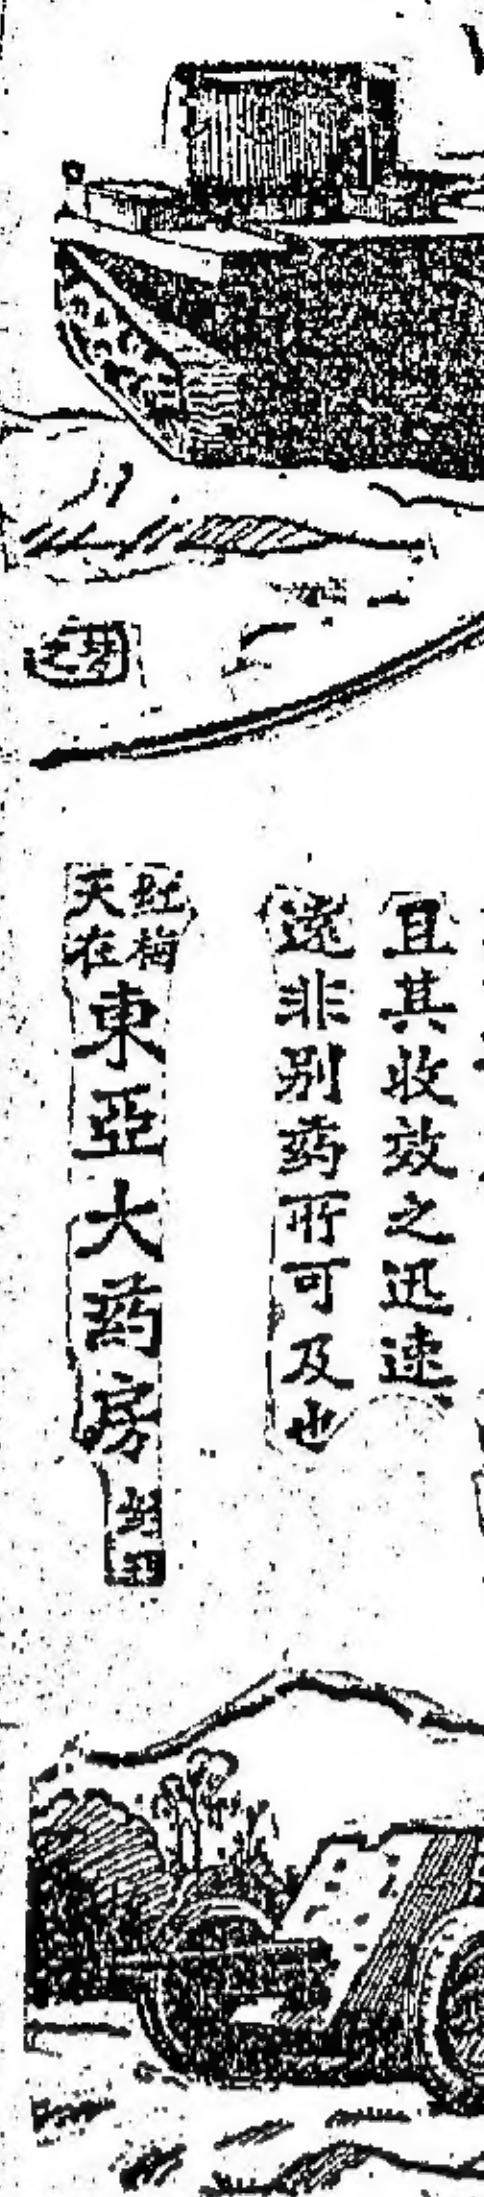 且其收效之迅速
遠非别药所可及也
紅梅
天在
東亞大药房